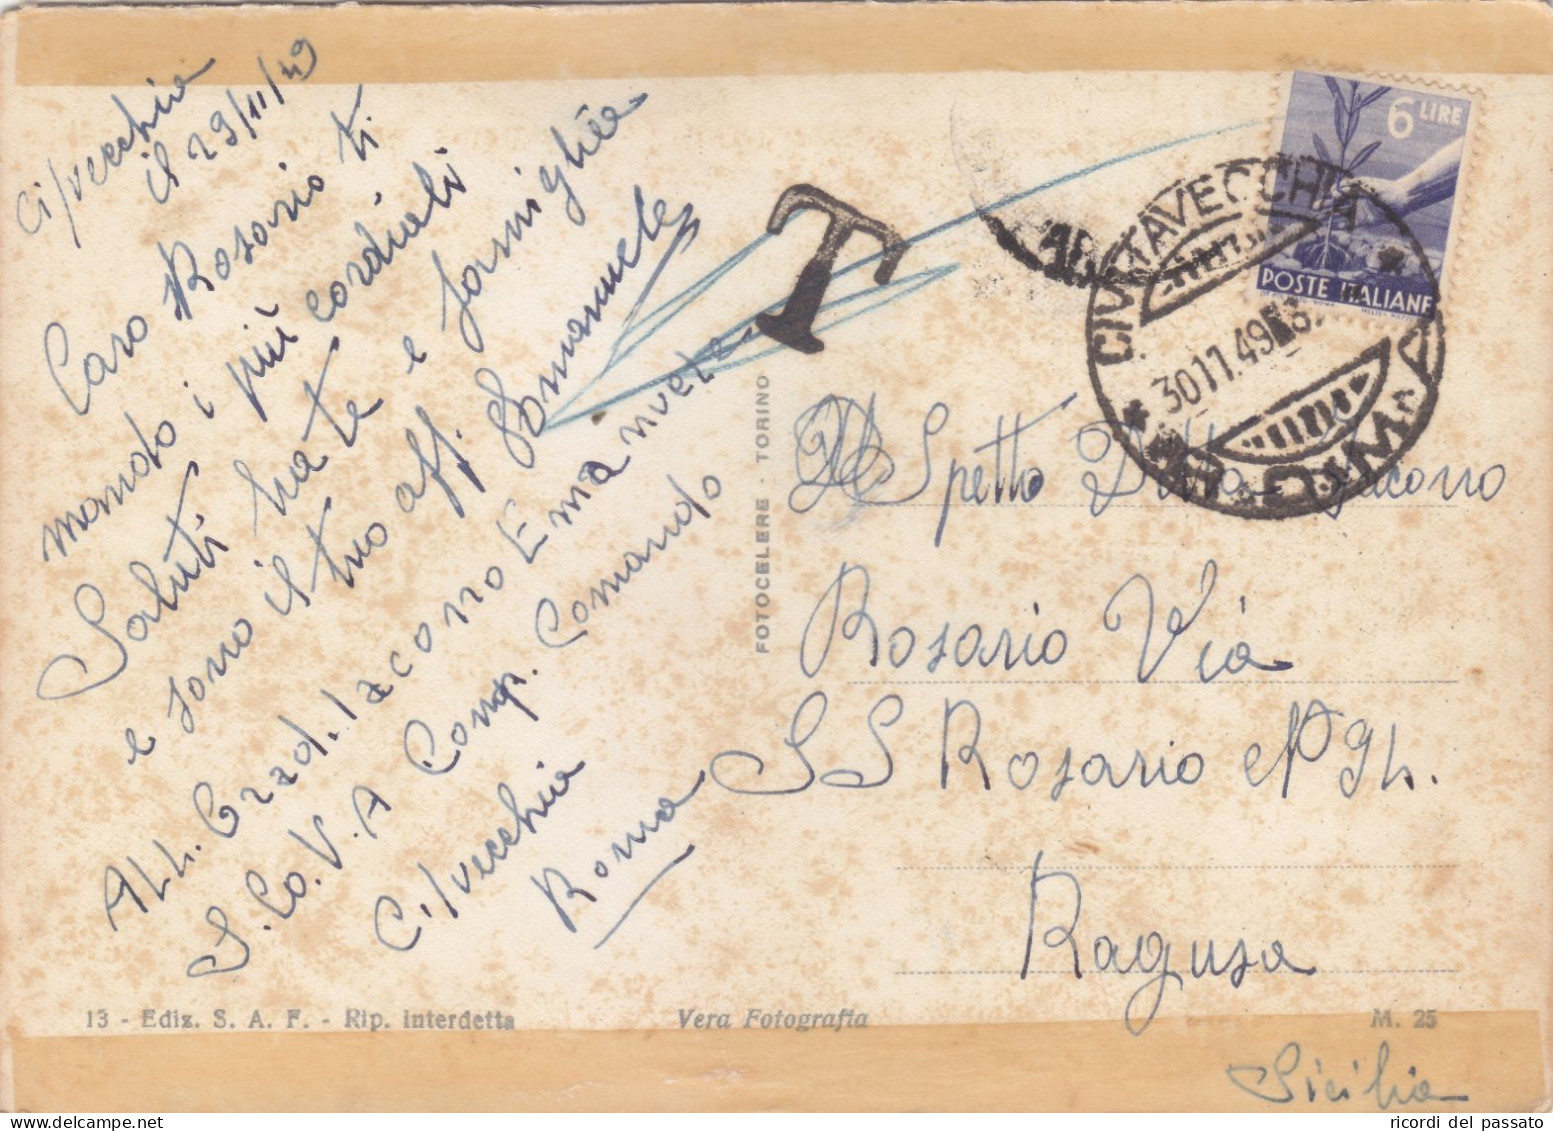 Ci/vecchia
il 29/11/49
Caro Rosario ti
mando i più cordiali
Saluti ha te e famiglia
e sono il tuo aff. Emanuele
All. Grad. Iacono Emanuele
S. Co. V. A Comp. Comando
C./vecchia
Roma
FOTOCELERE - TORINO
T
6 LIRE
POSTE ITALIANE
CIVITAVECCHIA
30.11.49
Spetto Ditta Iacono
Rosario Via
SS Rosario N
Ragusa
Sicilia
13 - Ediz. S. A. F. - Rip. interdetta
Vera Fotografia
M. 25
ricordi del passato